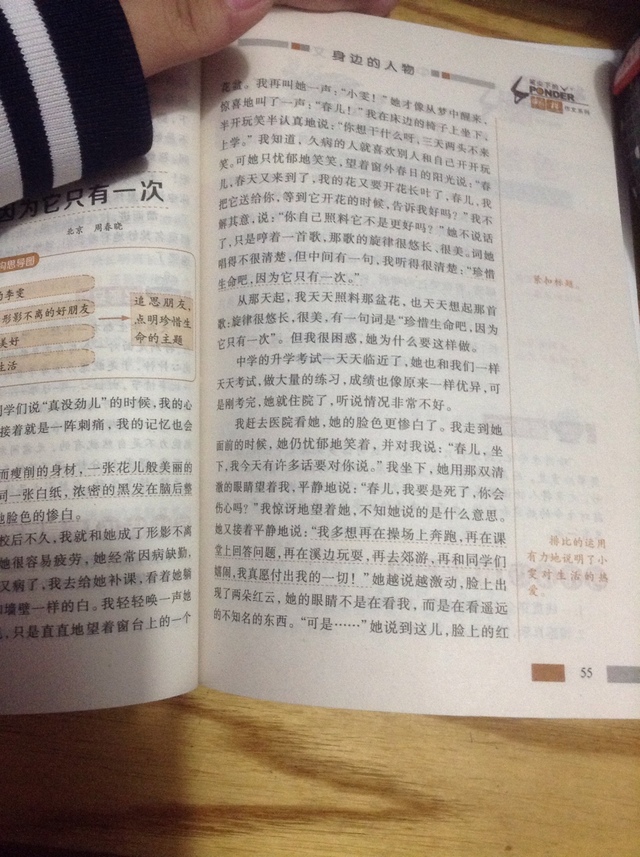 因为它只有一次
北京 周春晓
构思导图
季雯
形影不离的好朋友
美好
生活
追思朋友,
点明珍惜生
命的主题
同学们说“真没劲儿”的时候,我的心
接着就是一阵刺痛,我的记忆也会
而瘦削的身材,一张花儿般美丽的
同一张白纸,浓密的黑发在脑后整
她脸色的惨白。
校后不久,我就和她成了形影不离
她很容易疲劳,她经常因病缺勤,
又病了,我去给她补课,看着她躺
墙壁一样的白。我轻轻唤一声她
,只是直直地望着窗台上的一个
身边的人物
PONDER
花盆。我再叫她一声:“小雯!”她才像从梦中醒来,
惊喜地叫了一声:“春儿!”我在床边的椅子上坐下,
半开玩笑半认真地说:“你想干什么呀,三天两头不来
上学。”我知道,久病的人就喜欢别人和自己开开玩
笑。可她只忧郁地笑笑,望着窗外春日的阳光说:“春
儿,春天又来到了,我的花又要开花长叶了,春儿,我
把它送给你,等到它开花的时候,告诉我好吗?”我不
解其意,说:“你自己照料它不是更好吗?”她不说话
了,只是哼着一首歌,那歌的旋律很悠长,很美。词她
唱得不很清楚,但中间有一句,我听得很清楚:“珍惜
生命吧,因为它只有一次。”
从那天起,我天天照料那盆花,也天天想起那首
歌:旋律很悠长,很美,有一句词是“珍惜生命吧,因为
它只有一次”。但我很困惑,她为什么要这样做。
中学的升学考试一天天临近了,她也和我们一样
天天考试,做大量的练习,成绩也像原来一样优异,可
是刚考完,她就住院了,听说情况非常不好。
我赶去医院看她,她的脸色更惨白了。我走到她
面前的时候,她仍忧郁地笑着,并对我说:“春儿,坐
下,我今天有许多话要对你说。”我坐下,她用那双清
澈的眼睛望着我,平静地说:“春儿,我要是死了,你会
伤心吗?”我惊讶地望着她,不知她说的是什么意思。
她又接着平静地说:“我多想再在操场上奔跑,再在课
堂上回答问题,再在溪边玩耍,再去郊游、再和同学们
嬉闹,我真愿付出我的一切!”她越说越激动,脸上出
现了两朵红云,她的眼睛不是在看我,而是在看遥远
的不知名的东西。“可是……”她说到这儿,脸上的红
紧扣标题。
排比的运用
有力地说明了小
雯对生活的热
爱。
55